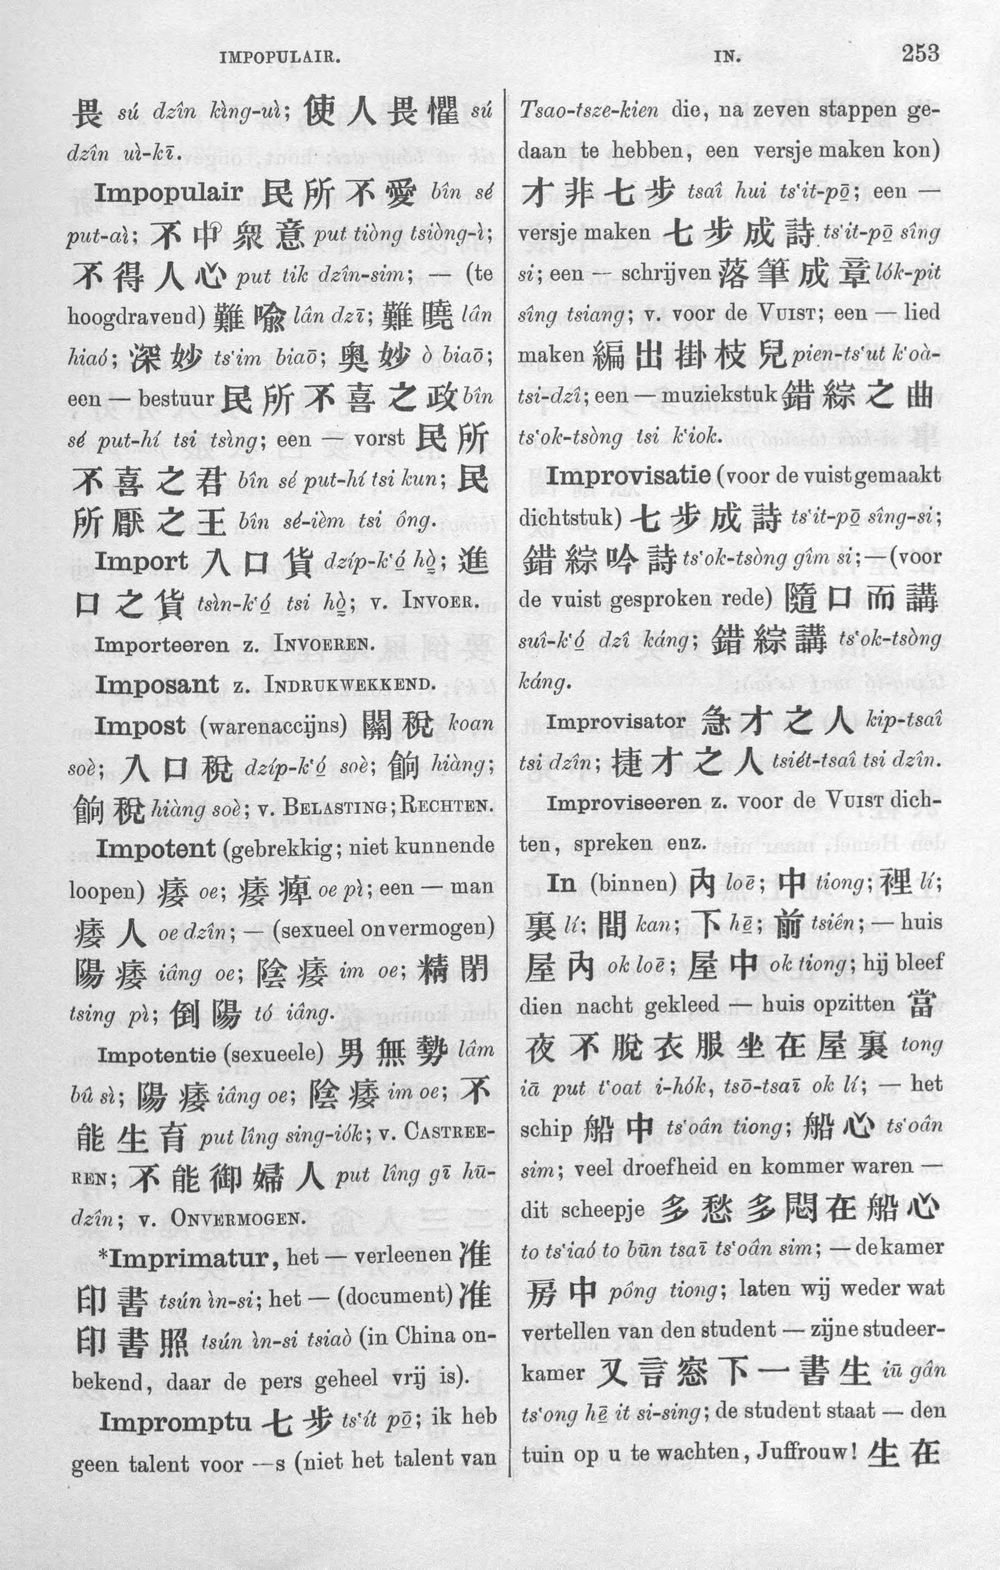 IMPOPULAIR.
IN.
253
畏 sú dzîn kìng-uì; 使人畏懼 sú
dzîn uì-kī.
Impopulair 民所不愛 bîn sé
put-aì; 不中衆意 put tiòng tsiòng-ì;
不得人心 put tik dzîn-sim; — (te
hoogdravend) 難喩 lân dzī; 難曉 lân
hiaó; 深妙 ts'im biaō; 奥妙 ò biaō;
een — bestuur 民所不喜之政 bîn
sé put-hí tsi tsìng; een — vorst 民所
不喜之君 bîn sé put-hí tsi kun; 民
所厭之王 bîn sé-ièm tsi ông.
Import 入口貨 dzíp-k'ó hò; 進
口之貨 tsìn-k'ó tsi hò; v. INVOER.
Importeeren z. INVOEREN.
Imposant z. INDRUKWEKKEND.
Impost (warenaccijns) 關稅 koan
soè; 入口稅 dzíp-k'ó soè; 餉 hiàng;
餉稅 hiàng soè; v. BELASTING; RECHTEN.
Impotent (gebrekkig; niet kunnende
loopen) 痿 oe; 痿痺 oe pì; een — man
痿人 oe dzîn; — (sexueel onvermogen)
陽痿 iâng oe; 陰痿 im oe; 精閉
tsing pì; 倒陽 tó iâng.
Impotentie (sexueele) 男無勢 lâm
bû sì; 陽痿 iâng oe; 陰痿 im oe; 不
能生育 put lîng sing-iók; v. CASTREE-
REN; 不能御婦人 put lîng gī hū-
dzîn; v. ONVERMOGEN.
*Imprimatur, het — verleenen 准
印書 tsún ìn-si; het — (document) 准
印書照 tsún ìn-si tsiaò (in China on-
bekend, daar de pers geheel vrij is).
Impromptu 七步 ts'ít pō; ik heb
geen talent voor —s (niet het talent van
Tsao-tsze-kien die, na zeven stappen ge-
daan te hebben, een versje maken kon)
才非七步 tsaî hui ts'it-pō; een —
versje maken 七步成詩 ts'it-pō sîng
si; een — schrijven 落筆成章 lók-pit
sîng tsiang; v. voor de VUIST; een — lied
maken 編出掛枝兒 pien-ts'ut k'oà-
tsi-dzî; een — muziekstuk 錯綜之曲
ts'ok-tsòng tsi k'iok.
Improvisatie (voor de vuist gemaakt
dichtstuk) 七步成詩 ts'it-pō sîng-si;
錯綜吟詩 ts'ok-tsòng gîm si; — (voor
de vuist gesproken rede) 隨口而講
suî-k'ó dzî káng; 錯綜講 ts'ok-tsòng
káng.
Improvisator 急才之人 kip-tsaî
tsi dzîn; 捷才之人 tsiét-tsaî tsi dzîn.
Improviseeren z. voor de VUIST dich-
ten, spreken enz.
In (binnen) 內 loē; 中 tiong; 裡 lí;
裏 lí; 間 kan; 下 hē; 前 tsiên; — huis
屋內 ok loē; 屋中 ok tiong; hij bleef
dien nacht gekleed — huis opzitten 當
夜不脫衣服坐在屋裏 tong
iā put t'oat i-hók, tsō-tsaī ok lí; — het
schip 船中 ts'oân tiong; 船心 ts'oân
sim; veel droefheid en kommer waren —
dit scheepje 多愁多悶在船心
to ts'iaó to būn tsaī ts'oân sim; — de kamer
房中 pông tiong; laten wij weder wat
vertellen van den student — zijne studeer-
kamer 又言窓下一書生 iū gân
ts'ong hē it si-sing; de student staat — den
tuin op u te wachten, Juffrouw! 生在